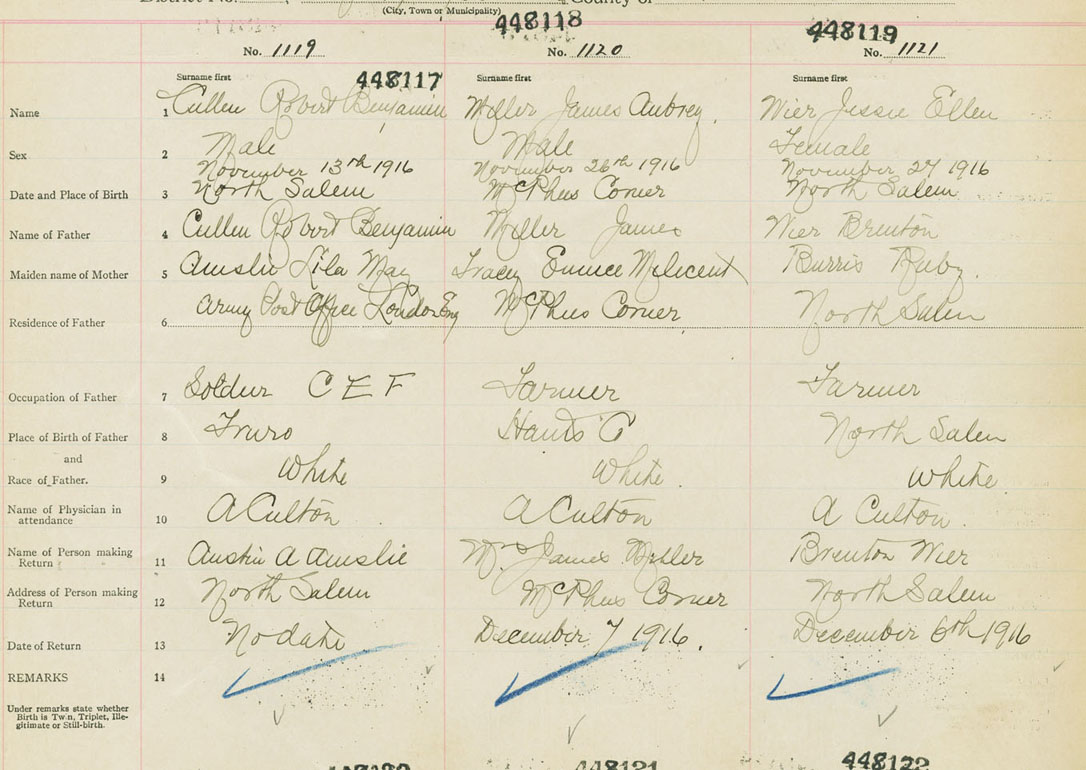 (City, Town or Municipality)
448118
448119
No. 1119
No. 1120
No. 1121
Surname first
448117
Surname first
Surname first
Name 1 Cullen Robert Benjamin Miller James Aubrey. Wier Jessie Ellen
Sex 2 Male Male Female
November 13th 1916 November 26th 1916 November 27 1916
Date and Place of Birth 3 North Salem McPhees Corner North Salem
Name of Father 4 Cullen Robert Benjamin Miller James Wier Brenton
Maiden name of Mother 5 Ainslie Lila May Tracey Eunice Milicent Burris Ruby.
Residence of Father 6 Army Post Office London Eng McPhees Corner North Salem
Occupation of Father 7 Soldier C E F Farmer Farmer
Place of Birth of Father 8 Truro Hants C North Salem
and
Race of Father. 9 White White White
Name of Physician in
attendance 10 A Culton A Culton A Culton
Name of Person making
Return 11 Austin A Ainslie Mrs James Miller Brenton Wier
Address of Person making
Return 12 North Salem McPhees Corner North Salem
Date of Return 13 No date December 7 1916. December 6th 1916
REMARKS 14
Under remarks state whether
Birth is Twin, Triplet, Ille-
gitimate or Still-birth.
448121
448122